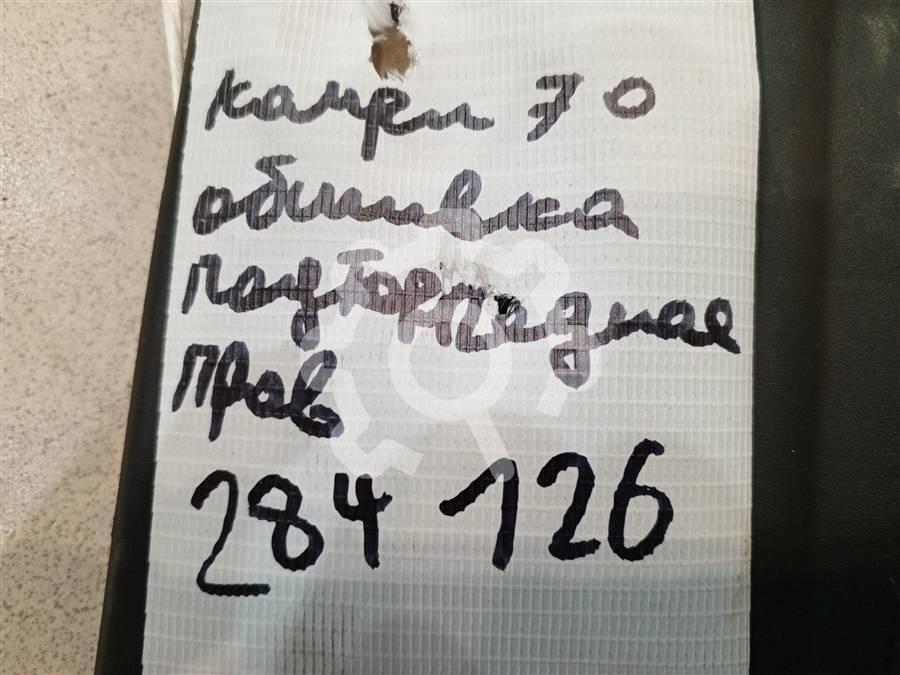 камри 70
обшивка
подторпедная
прав
284 126